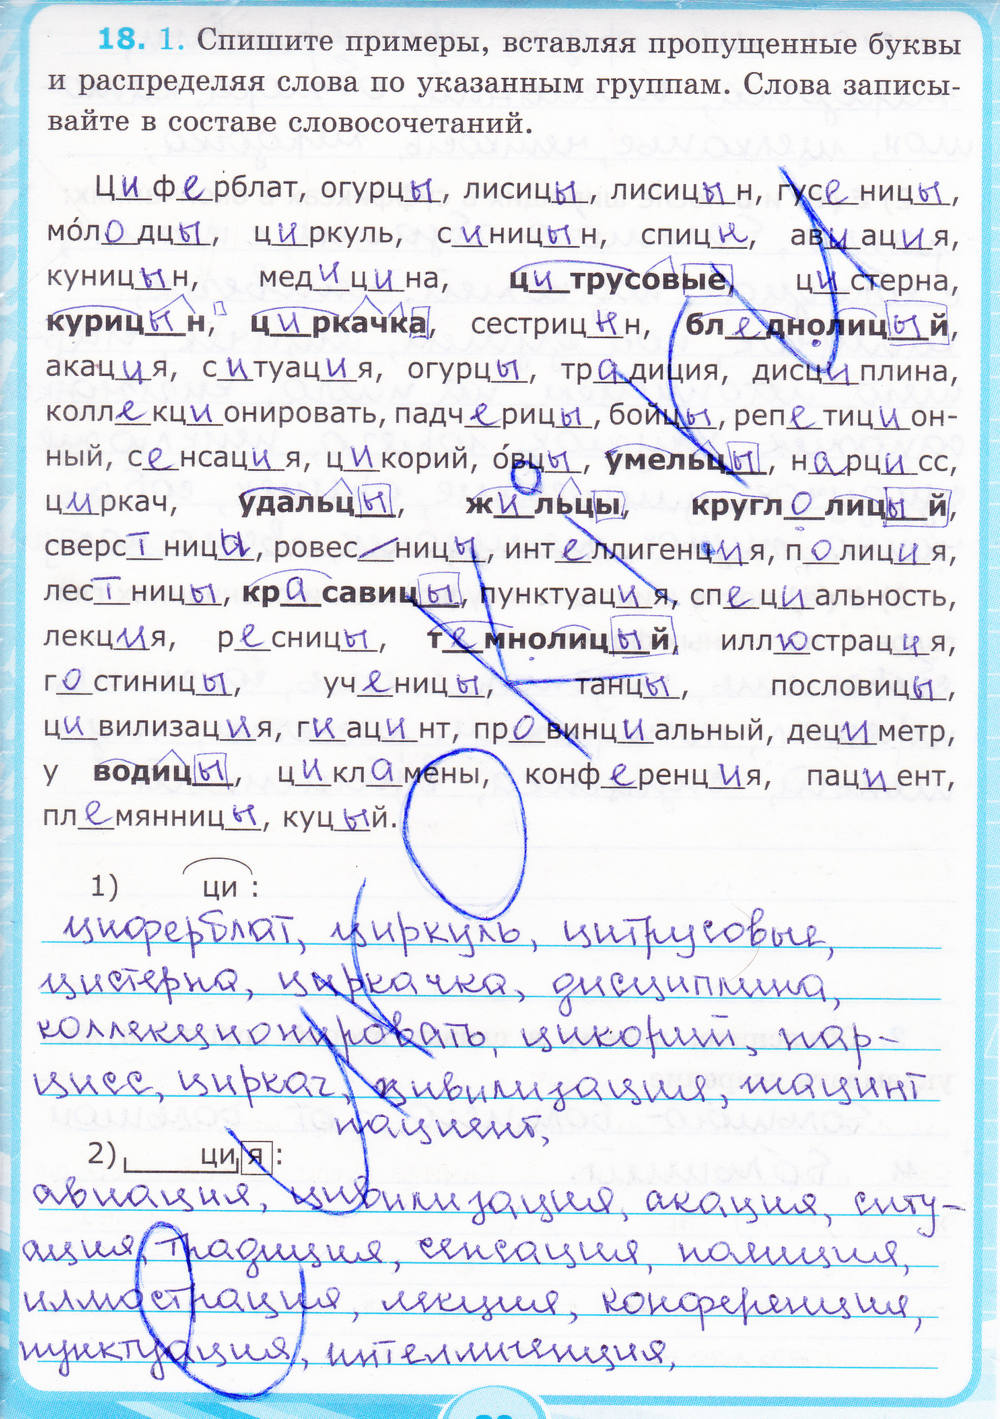 18. 1. Спишите примеры, вставляя пропущенные буквы
и распределяя слова по указанным группам. Слова записы-
вайте в составе словосочетаний.
Циферблат, огурцы, лисицы, лисицын, гусеницы,
мо́лодцы, циркуль, синицын, спици, авиация,
куницын, медицина, цитрусовые, цистерна,
курицын, циркачка, сестрицин, бледнолицый,
акация, ситуация, огурцы, традиция, дисциплина,
коллекционировать, падчерицы, бойцы, репетицион-
ный, сенсация, цикорий, о́вцы, умельцы, нарцисс,
циркач, удальцы, жильцы, круглолицый,
сверстницы, ровесницы, интеллигенция, полиция,
лестницы, красавицы, пунктуация, специальность,
лекция, ресницы, темнолицый, иллюстрация,
гостиницы, ученицы, танцы, пословицы,
цивилизация, гиацинт, провинциальный, дециметр,
у водицы, цикламены, конференция, пациент,
племянницы, куцый.
1) ци :
циферблат, циркуль, цитрусовые,
цистерна, циркачка, дисциплина,
коллекционировать, цикорий, нар-
цисс, циркач, цивилизация, гиацинт
пациент,
2) ция :
авиация, цивилизация, акация, ситу-
ация, традиция, сенсация, полиция,
иллюстрация, лекция, конференция,
пунктуация, интеллигенция,